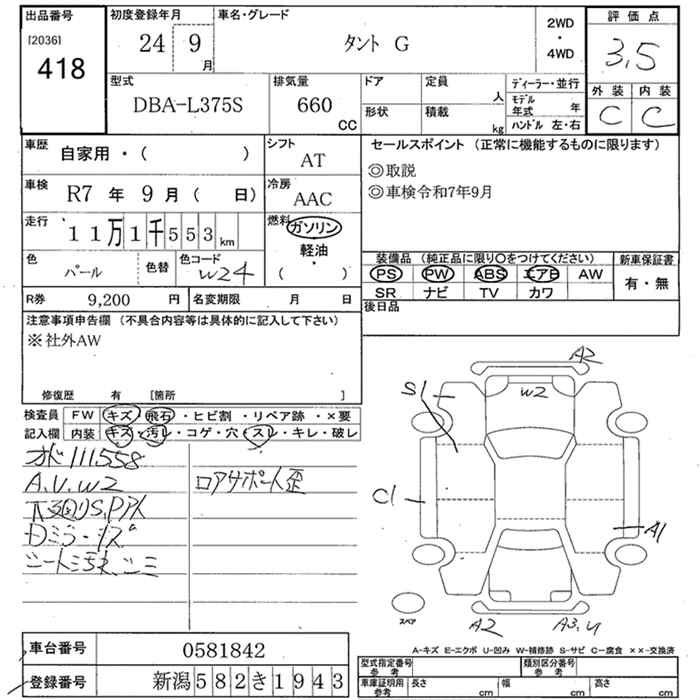 出品番号 初度登録年月 車名・グレード 2WD・4WD 評価点
[2036] 24 9月 タント G 3.5
418
型式 排気量 ドア 定員 人 ディーラー・並行 外装 内装
DBA-L375S 660 CC 形状 積載 kg モデル年式 年 C C
ハンドル 左・右
車歴 自家用・( ) シフト AT セールスポイント (正常に機能するものに限ります)
◎取説
車検 R7 年 9 月 ( 日) 冷房 AAC ◎車検令和7年9月
走行 11万1千553km 燃料 ガソリン・軽油・( )
色 パール 色替 色コード W24 装備品 (純正品に限り〇をつけてください) 新車保証書
PS PW ABS エアB AW 有・無
R券 9,200 円 名変期限 月 日 SR ナビ TV カワ
注意事項申告欄 (不具合内容等は具体的に記入して下さい) 後日品
※社外AW
修復歴 有 [箇所 ]
検査員 FW キズ・飛石・ヒビ割・リペア跡・×要
記入欄 内装 キズ・汚レ・コゲ・穴・スレ・キレ・破レ
111558
A.U.W2 ロアサポート歪
A2
S1
W2
C1
A1
スペア
A2
A3.U
A-キズ E-エクボ U-凹み W-補修跡 S-サビ C-腐食 ××-交換済
車台番号 0581842
登録番号 新潟582き1943
型式指定番号 参考 類別区分番号 参考
車庫証明用 参考 長さ cm 幅 cm 高さ cm